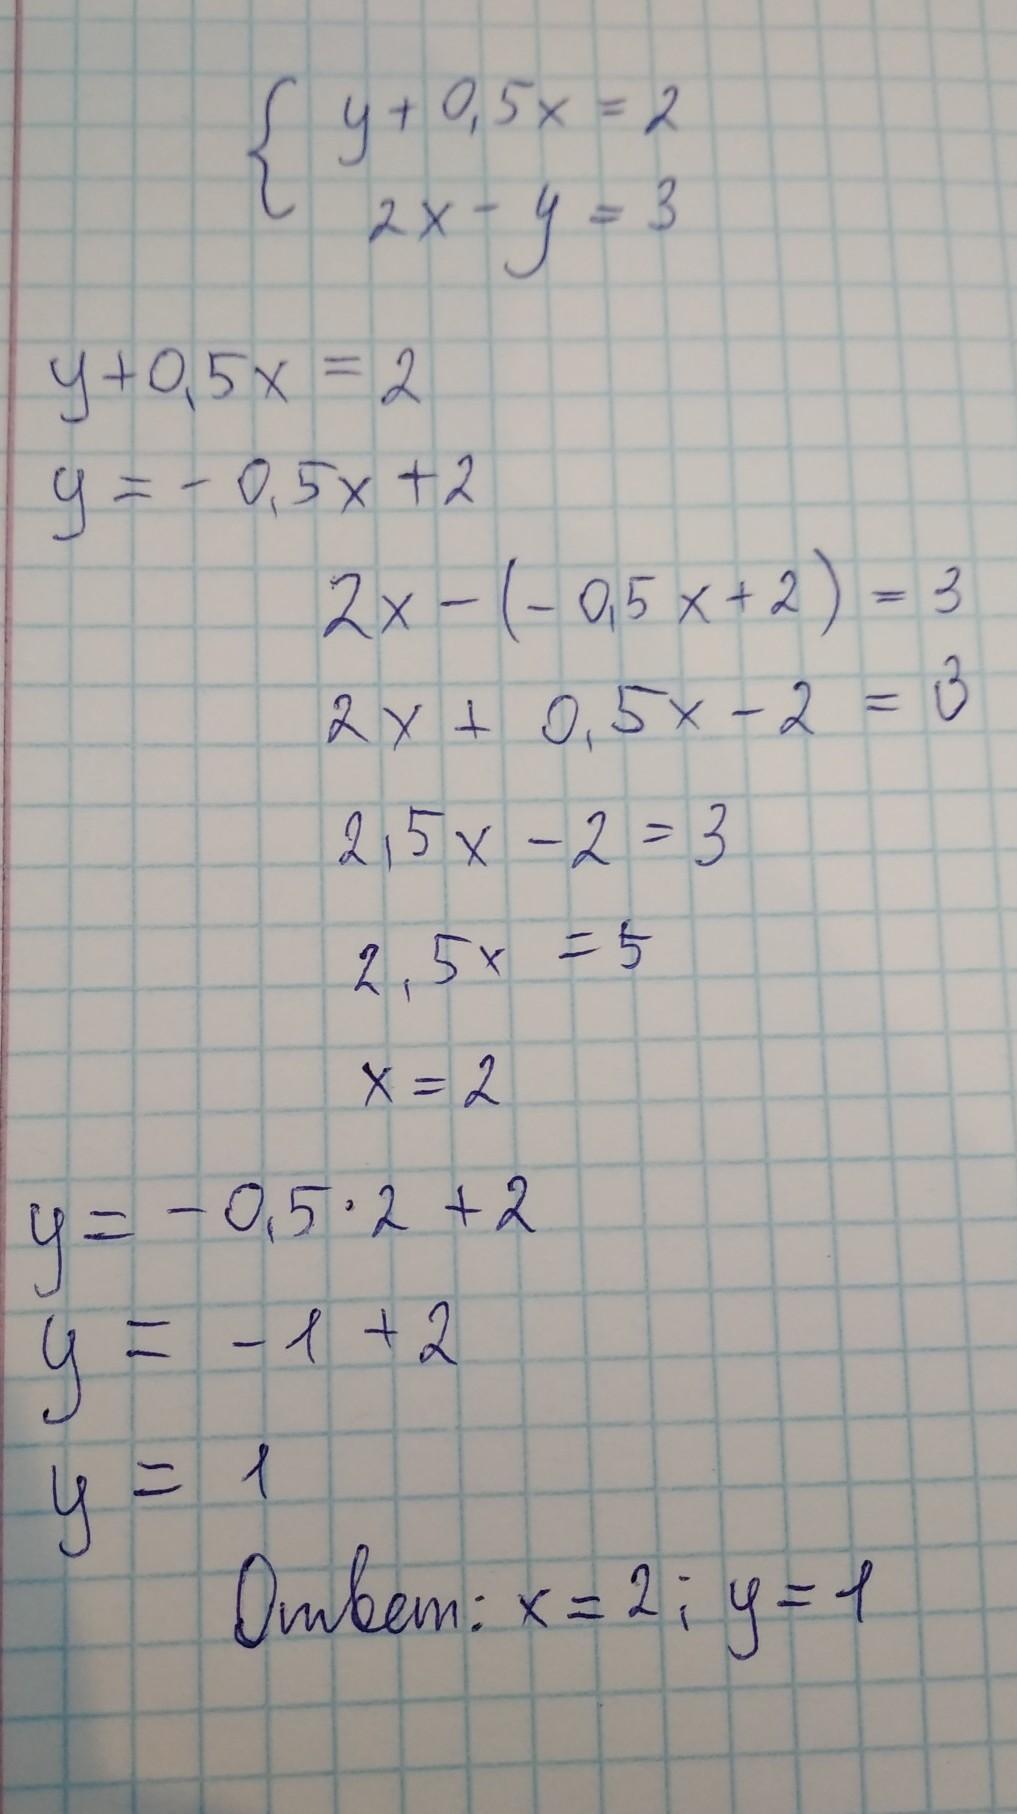 y + 0,5x = 2
2x - y = 3
y + 0,5x = 2
y = - 0,5x + 2
2x - (- 0,5x + 2) = 3
2x + 0,5x - 2 = 3
2,5x - 2 = 3
2,5x = 5
x = 2
y = - 0,5 · 2 + 2
y = - 1 + 2
y = 1
Ответ: x = 2; y = 1